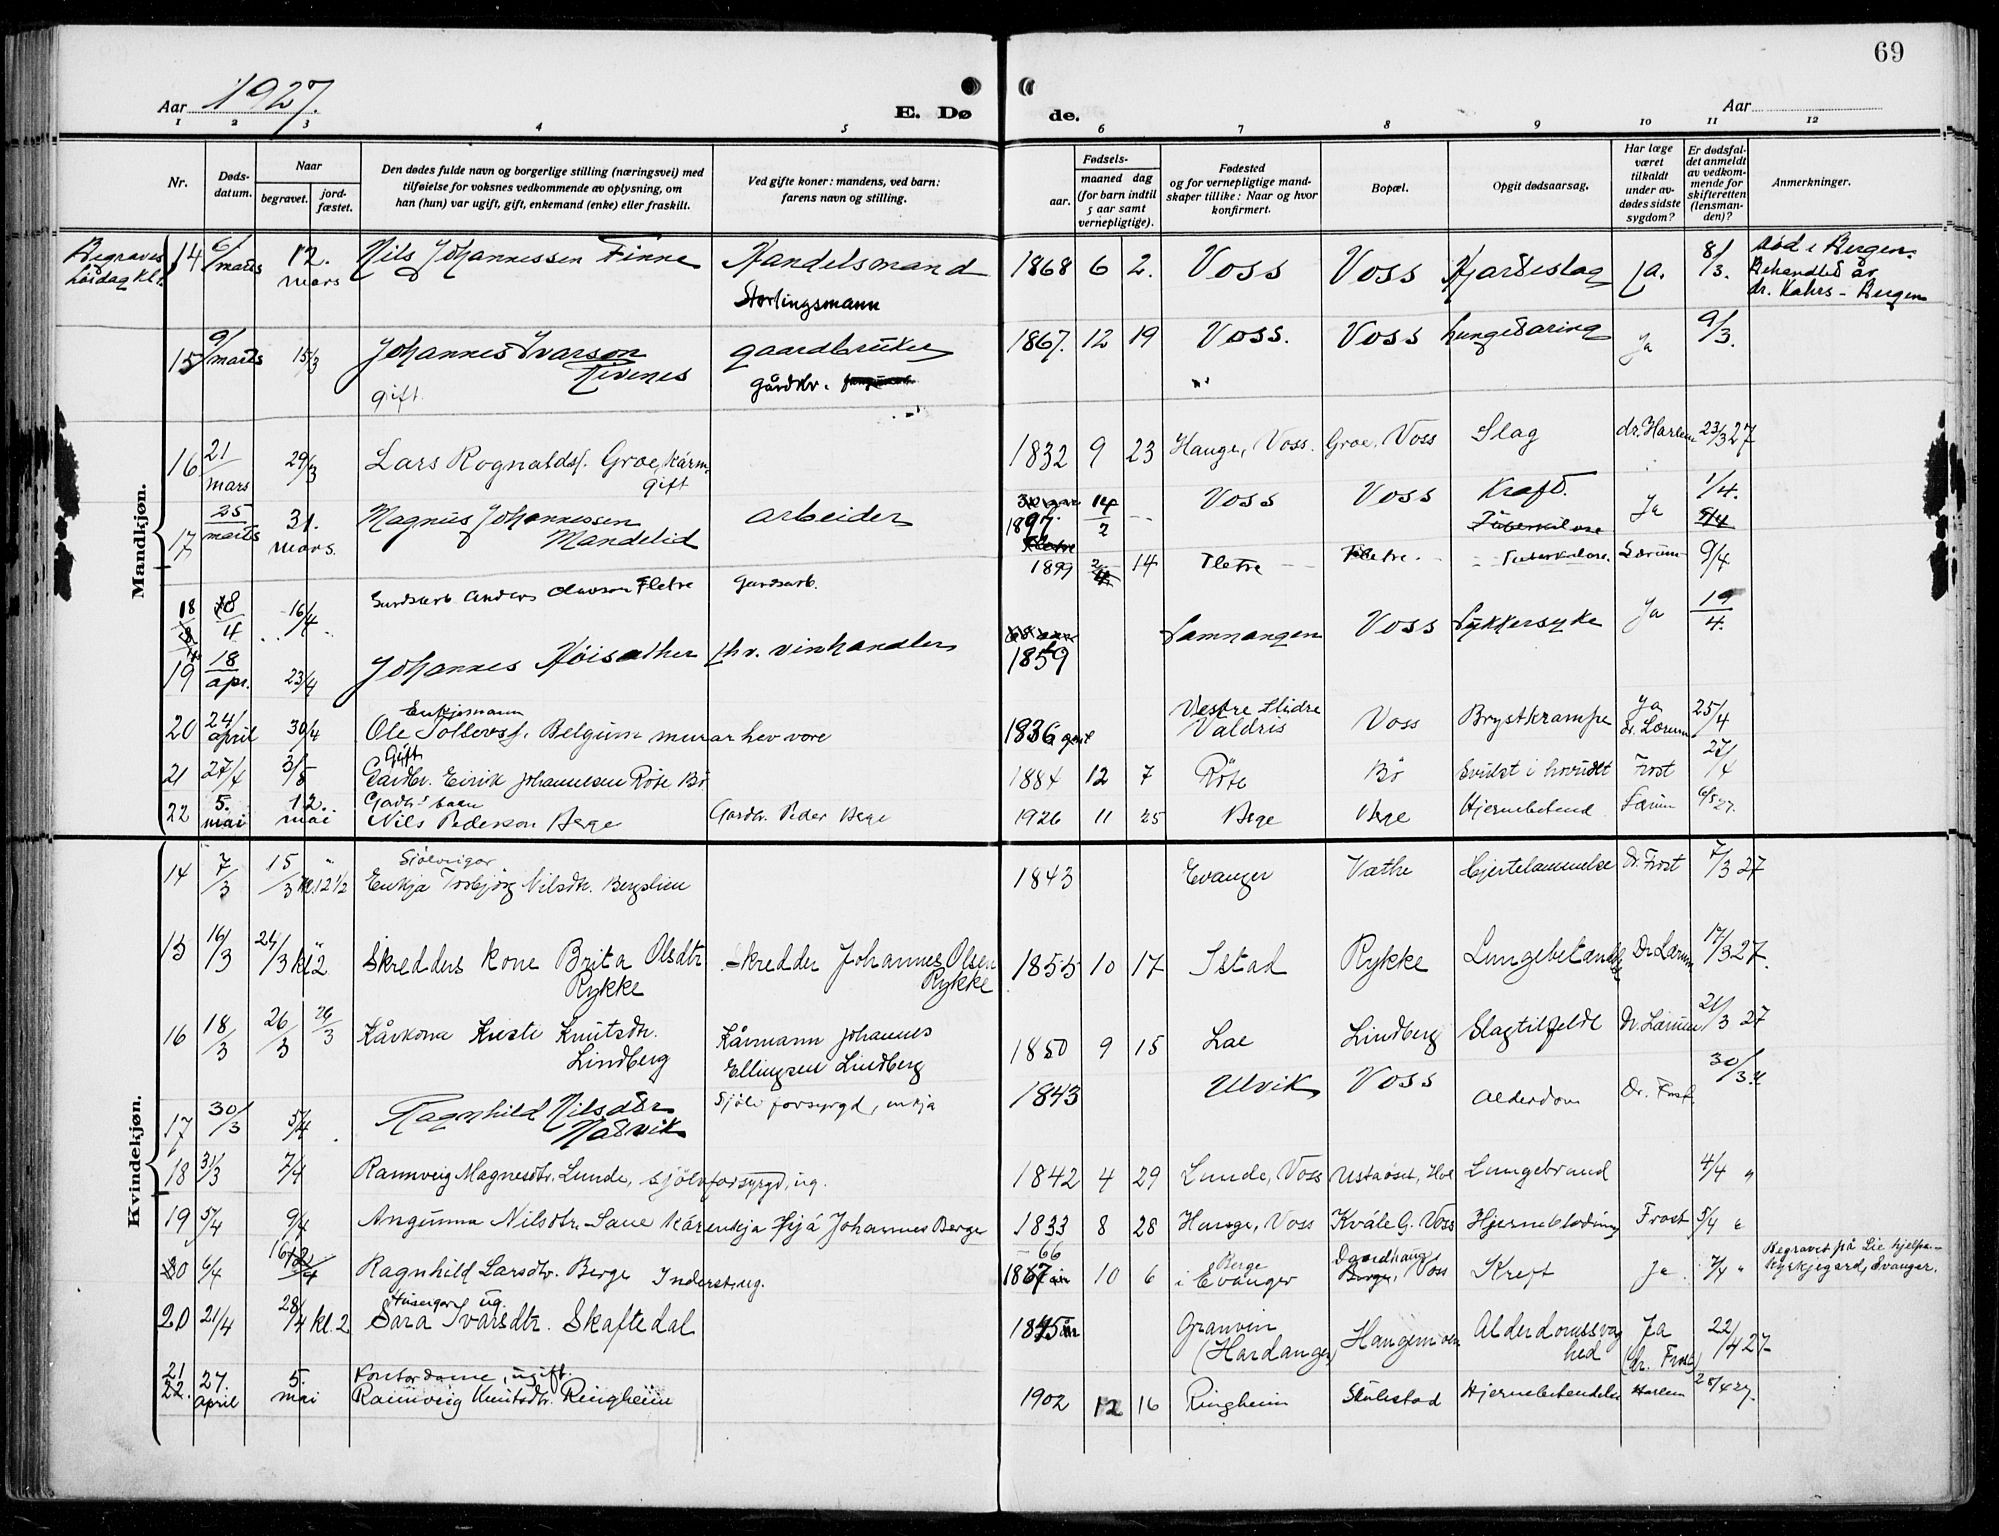 69
Aar 1927.
E. Dø
de.
Aar
1 2 3 4 5 6 7 8 9 10 11 12
Nr.
Døds-
datum.
Naar
begravet.
jord-
fæstet.
Den dødes fulde navn og borgerlige stilling (næringsvei) med
tilføielse for voksnes vedkommende av oplysning, om
han (hun) var ugift, gift, enkemand (enke) eller fraskilt.
Ved gifte koner: mandens, ved barn:
farens navn og stilling.
Fødsels-
aar.
maaned dag
(for barn indtil
5 aar samt
vernepligtige).
Fødested
og for vernepligtige mand-
skaper tillike: Naar og hvor
konfirmert.
Bopæl.
Opgit dødsaarsag.
Har læge
været
tilkaldt
under av-
dødes sidste
sygdom?
Er dødsfal-
det anmeldt
av vedkom-
mende for
skifteretten
(lensman-
den)?
Anmerkninger.
Mandkjøn.
14 6/ marts 12. mars Nils Johannessen Finne Handelsmand 1868 6 2. Voss Voss Hjarteslag Ja. 8/3. død i Bergen.
Stortingsmann Behandled av
dr. Kahrs - Bergen
15 9/ marts 15/3 Johannes Ivarson gaardbruker 1867. 12 19 Voss. Voss Lungebetændelse Ja 9/3.
Rivenes
gift. gårdbr.
16 21/mars 29/3 Lars Rognaldsf. Groe, kårm. 1832 9 23 Hauge, Voss. Groe, Voss Slag dr. Harlem 23/3 27
gift
17 25/marts 31. mars. Magnus Johannessen arbeider 1897. 14/2 Voss Voss Kræft. Ja 1/4.
Mandelid
18 8/4 16/4 Gardsarb. Anders Olavson Fletre Gardsarb. 1899 14 Fletre Fletre Tuberkulose Lærum 9/4
19 18/apr. 23/4 Johannes Høisæther fhv. vinhandler 1859 Samnangen Voss Sukkersyke Ja 19/4.
Enkjemann
20 24/april 30/4 Ole Tollevsf. Belgum murar hev vore 1836 Vestre Slidre Valdris Voss Brystkrampe Ja Dr. Lærum 25/4
Gift
21 27/4 3/5 Gardbr. Eirik Johannesen Røte Bø 1884 12 7 Røte Bø Svulst i hovudet Frost 27/4
22 5. mai 12. mai Nils Pederson Berge Gardbr. Peder Berge 1926 11 25 Berge Berge Hjernebetend Lærum 6/5 27.
Kvindekjøn.
Sjølveigar
14 7/3 15/3 kl. 12 1/2 Enkja Torbjørg Nilsdtr. Bergslien 1843 Evanger Væthe Hjertelammelse Dr. Frost 7/3 27
15 16/3 24/3 kl 2 Skredders kone Brita Olsdtr. Skredder Johannes Olsen 1855 10 17 Istad Rykke Lungebetændelse Dr Lærum 17/3 27.
Rykke Rykke
16 18/3 26/3 26/3 Kårkona Kristi Knutsdtr. Kårmann Johannes 1850 9 15 Lae Lindberg Slagtilfelde Dr. Lærum 21/3 27
Lindberg Ellingsen Lindberg
17 30/3 5/4 Ragnhild Nilsdtr Sjølv forsyrgd, enkja 1843 Ulvik Voss Alderdom Dr. Frost 30/3
Nesvik
18 31/3 7/4 Rannveig Magnesdtr. Lunde, sjølvforsyrgd, ug. 1842 4 29 Lunde, Voss Ustaoset, Hol Lungebrand 4/4 "
19 5/4 9/4 Angunna Nilsdtr. Saue kårenkja hjå Johannes Berge 1833 8 28 Hauge, Voss Kvåle G. Voss Hjerneblødning Frost 5/4 "
6/4 16/4 Ragnhild Larsdtr. Berge Inderst, ug. 1867 10 6 Berge i Evanger Voss Kreft Ja 7/4 " Begravet på Lie hjelpe-
kyrkjegard, Evanger.
Huseigar ug.
20 21/4 28/4 kl. 2 Sara Ivarsdtr. Skaftedal 1845 Granvin (Hardanger) Haugamoen Alderdomssvaghed Ja (dr. Frost) 22/4 27
Kontordame, ugift.
21 27. april 5. mai Rannveig Knutsdtr. Ringheim 1902 12 16 Ringheim Skulestad Hjernebetendelse Harlem 28/4 27.